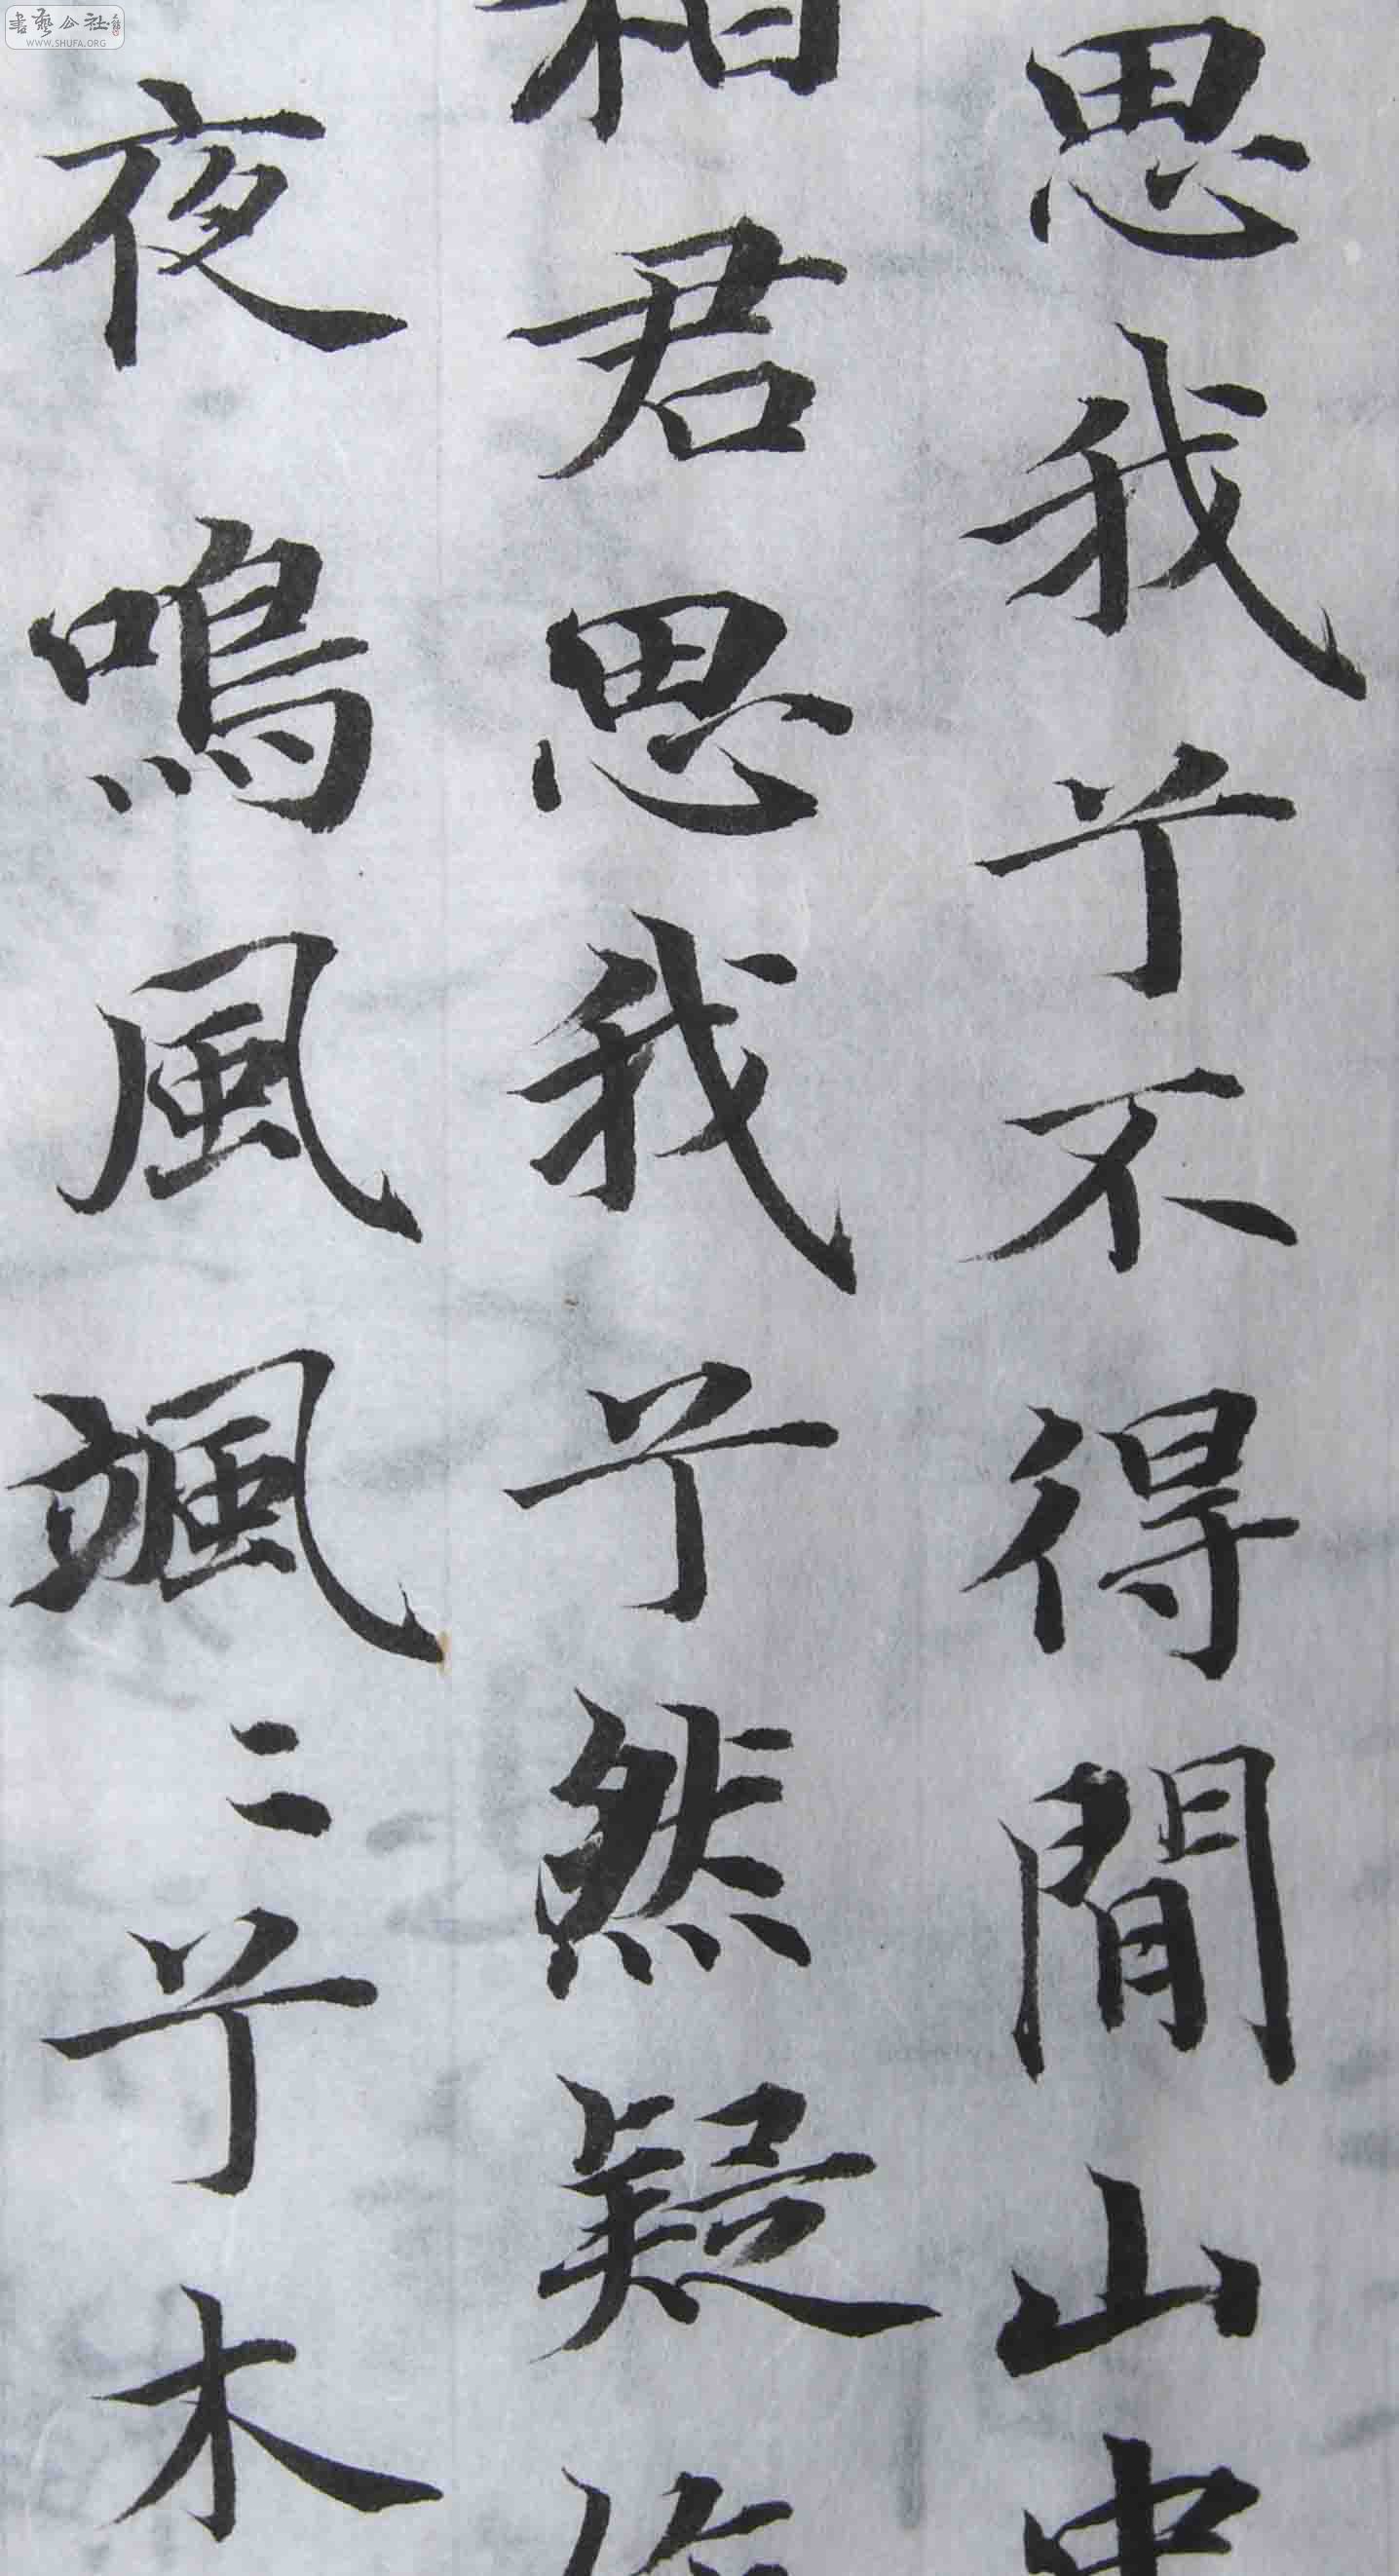 思我兮不得閒山中
柏君思我兮然疑作
夜鳴風颯〻兮木
書藝公社
WWW.SHUFA.ORG